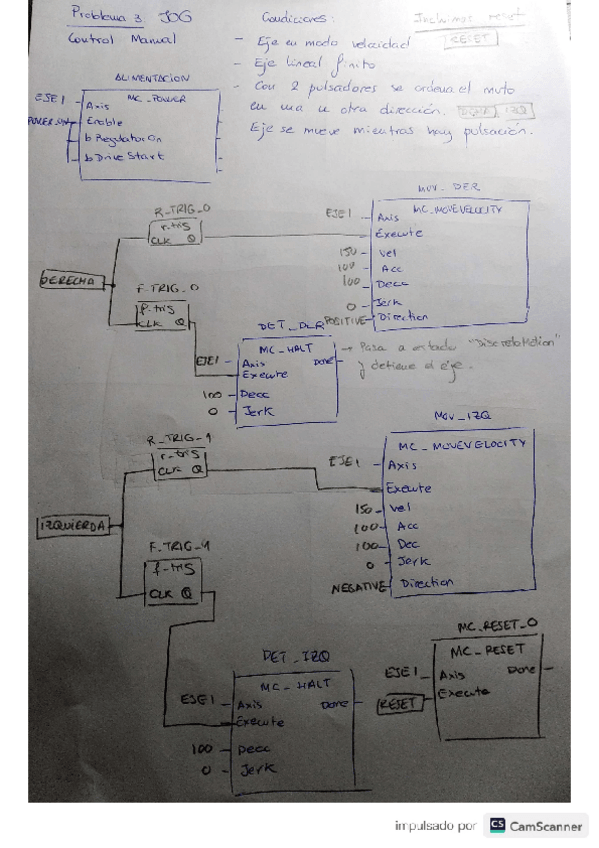 Problema 3: JOG
Control Manual
Condiciones:
Incluimos reset
RESET
- Eje en modo velocidad
- Eje lineal finito
- Con 2 pulsadores se ordena el
en una u otra dirección. IZQ
Eje se mueve mientras hay pulsación.
ALIMENTACION
MC_POWER
EJE1
Axis
Enable
bRegulatorOn
bDriveStart
MUV_DER
MC_MOVEVELOCITY
EJE1
Axis
Execute
150 - Vel
100 - Acc
100 - Decc
0 - Jerk
POSITIVE Direction
R_TRIG_0
r-tris
CLK Q
DERECHA
F_TRIG_0
f-tris
CLK Q
DET_DER
MC_HALT
EJE1
Axis
Done
Execute
100 - Decc
0 - Jerk
→ Pasa a estado "DiscreteMotion"
y detiene el eje.
MOV_IZQ
MC_MOVEVELOCITY
EJE1
Axis
Execute
150 - Vel
100 - Acc
100 - Dec
0 - Jerk
NEGATIVE Direction
R_TRIG_1
r-tris
CLK Q
IZQUIERDA
F_TRIG_1
f-tris
CLK Q
DET_IZQ
MC_HALT
EJE1
Axis
Done
Execute
100 - Decc
0 - Jerk
MC_RESET_0
MC_RESET
EJE1
Axis
Done
RESET
Execute
impulsado por CS CamScanner